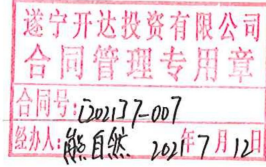 遂宁开达投资有限公司
合同管理专用章
合同号:[2021]7-007
经办人:熊自然 2021年7月12日